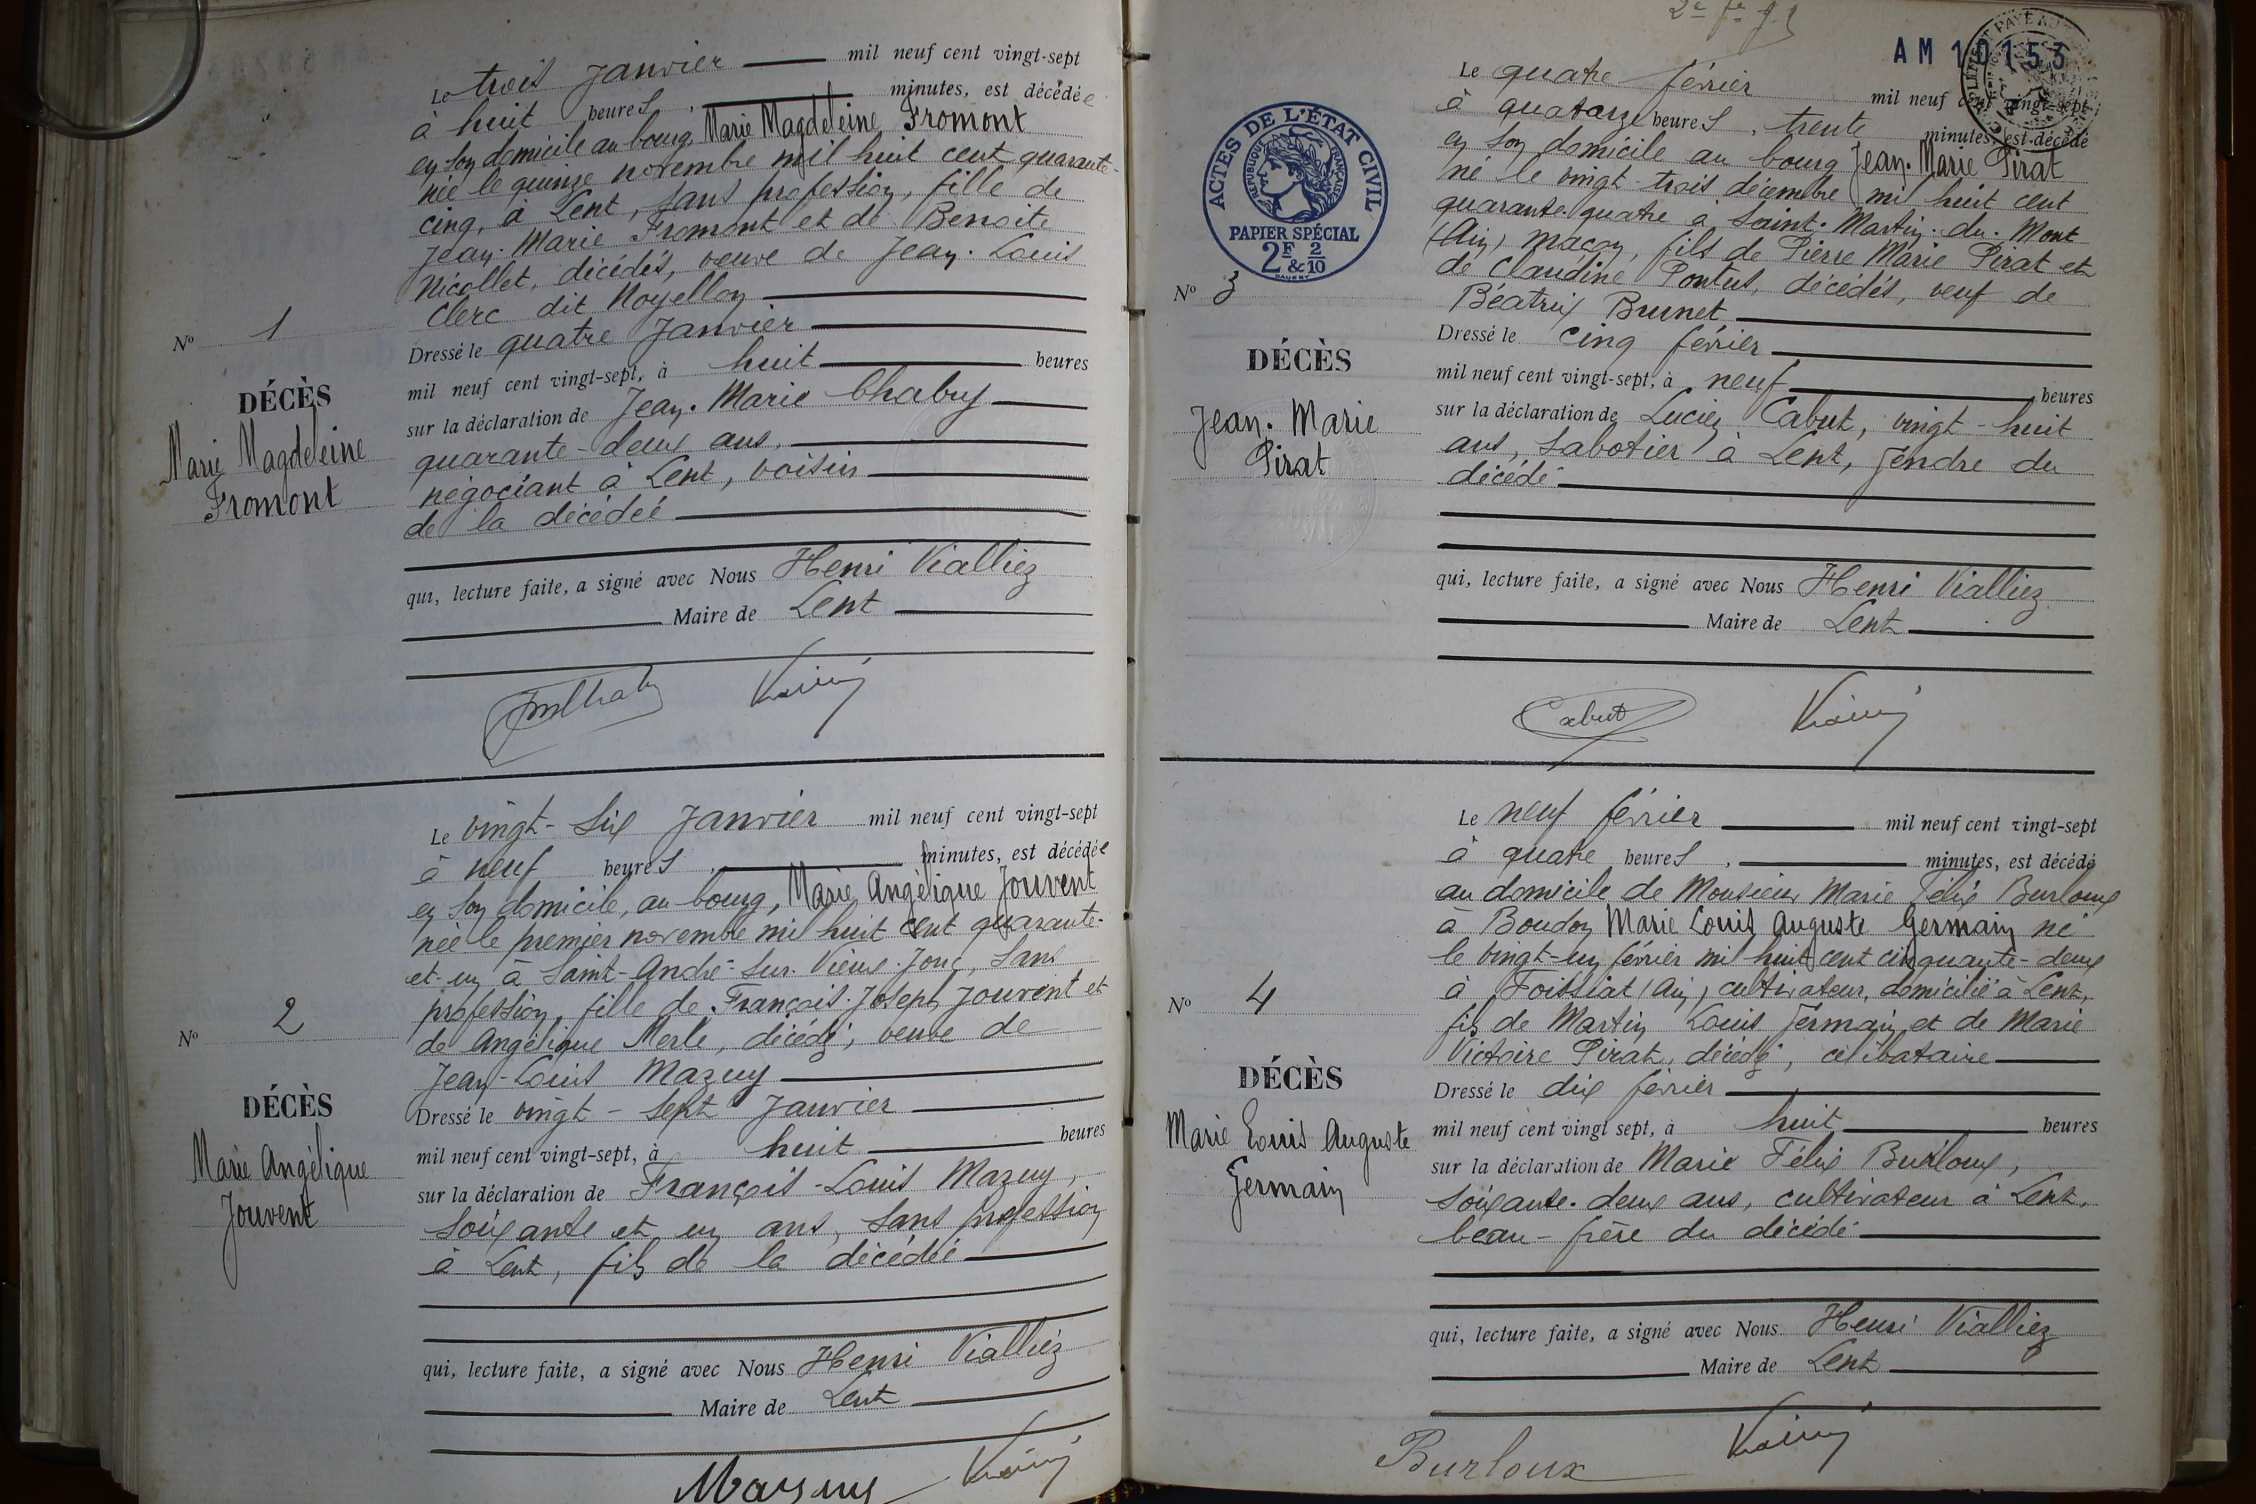 Le trois Janvier mil neuf cent vingt-sept
à huit heures, minutes, est décédée
en son domicile au bourg, Marie Magdeleine Fromont
née le quinze novembre mil huit cent quarante-
cinq, à Lent, sans profession, fille de
Jean-Marie Fromont et de Benoite
Nicollet, décédés, veuve de Jean-Louis
Clerc dit Noyellon
Dressé le quatre Janvier
mil neuf cent vingt-sept, à huit heures
sur la déclaration de Jean-Marie Chabry
quarante-deux ans,
négociant à Lent, voisin
de la décédée
qui, lecture faite, a signé avec Nous Henri Vialliez
Maire de Lent
No 1
DÉCÈS
Marie Magdeleine
Fromont
Le vingt-six Janvier mil neuf cent vingt-sept
à neuf heures, minutes, est décédée
en son domicile, au bourg, Marie Angélique Jouvent
née le premier novembre mil huit cent quarante-
et-un à Saint-André-sur-Vieux-Jonc, sans
profession, fille de François-Joseph Jouvent et
de Angélique Merle, décédés, veuve de
Jean-Louis Mazuy
Dressé le vingt-sept Janvier
mil neuf cent vingt-sept, à huit heures
sur la déclaration de François-Louis Mazuy,
soixante et un ans, sans profession
à Lent, fils de la décédée
qui, lecture faite, a signé avec Nous Henri Vialliez
Maire de Lent
Mazuy
No 2
DÉCÈS
Marie Angélique
Jouvent
AM 10153
ACTES DE L'ÉTAT CIVIL
RÉPUBLIQUE FRANÇAISE
PAPIER SPÉCIAL
2F & 2/10
Le quatre février mil neuf cent vingt-sept
à quatorze heures, trente minutes, est décédé
en son domicile au bourg Jean-Marie Pirat
né le vingt-trois décembre mil huit cent
quarante-quatre à Saint-Martin-du-Mont
(Ain) maçon, fils de Pierre Marie Pirat et
de Claudine Pontus, décédés, veuf de
Béatrix Brunet
Dressé le cinq février
mil neuf cent vingt-sept, à neuf heures
sur la déclaration de Lucien Cabut, vingt-huit
ans, sabotier à Lent, gendre du
décédé
qui, lecture faite, a signé avec Nous Henri Vialliez
Maire de Lent
Cabut
No 3
DÉCÈS
Jean-Marie
Pirat
Le neuf février mil neuf cent vingt-sept
à quatre heures, minutes, est décédé
au domicile de Monsieur Marie Félix Burloux
à Boudon Marie Louis Auguste Germain né
le vingt-un février mil huit cent cinquante-deux
à Foissiat (Ain) cultivateur, domicilié à Lent,
fils de Martin Louis Germain et de Marie
Victoire Pirat, décédés, célibataire
Dressé le dix février
mil neuf cent vingt sept, à huit heures
sur la déclaration de Marie Félix Burloux,
soixante-deux ans, cultivateur à Lent,
beau-frère du décédé
qui, lecture faite, a signé avec Nous Henri Vialliez
Maire de Lent
Burloux
No 4
DÉCÈS
Marie Louis Auguste
Germain